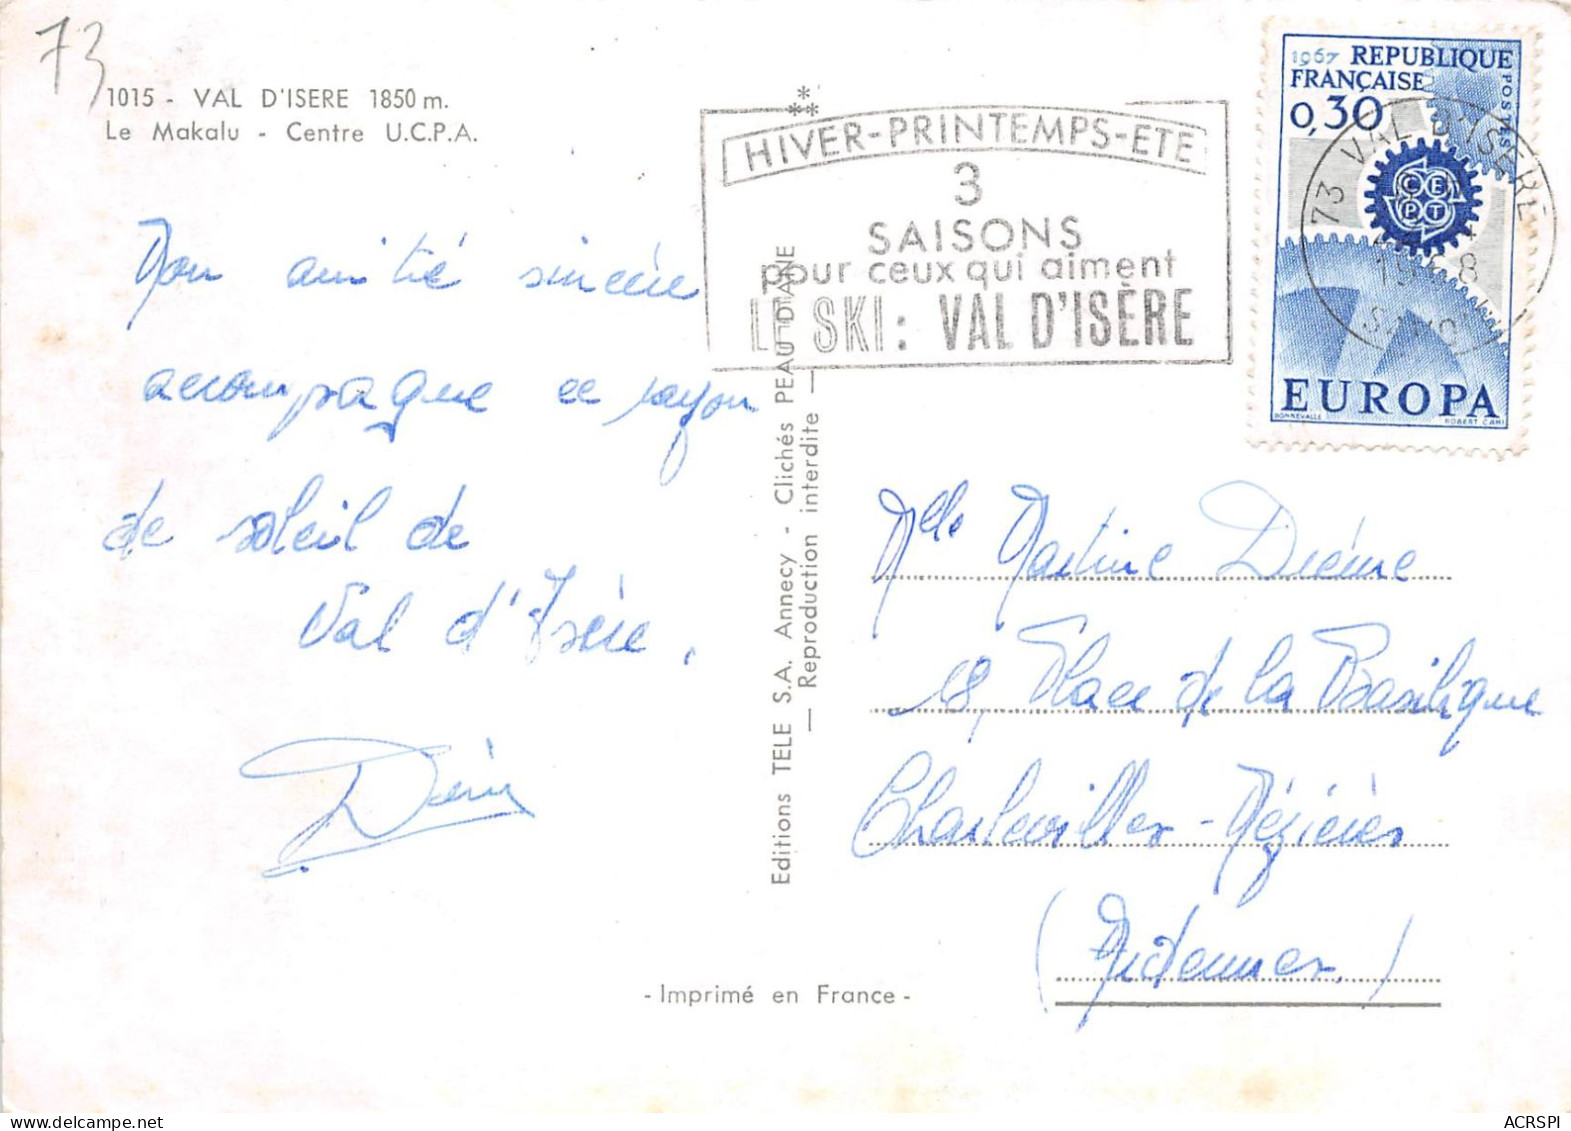 73
1015 - VAL D'ISERE 1850 m.
Le Makalu - Centre U.C.P.A.
Mon amitié sincère
accompagne ce rayon
de soleil de
Val d'Isère.
Editions TELE S.A. Annecy - Clichés PEAU DTAINE
— Reproduction interdite —
HIVER-PRINTEMPS-ETE
3
SAISONS
pour ceux qui aiment
LE SKI: VAL D'ISÈRE
1967 REPUBLIQUE
FRANÇAISE
0,30
POSTES
CEPT
EUROPA
BONNEVALLE ROBERT CAMI
73 VAL D'ISERE
1968
SAVOIE
Mlle Martine
18, Place de la Basilique
Charleville-Mézières
(Ardennes)
- Imprimé en France -
ACRSPI